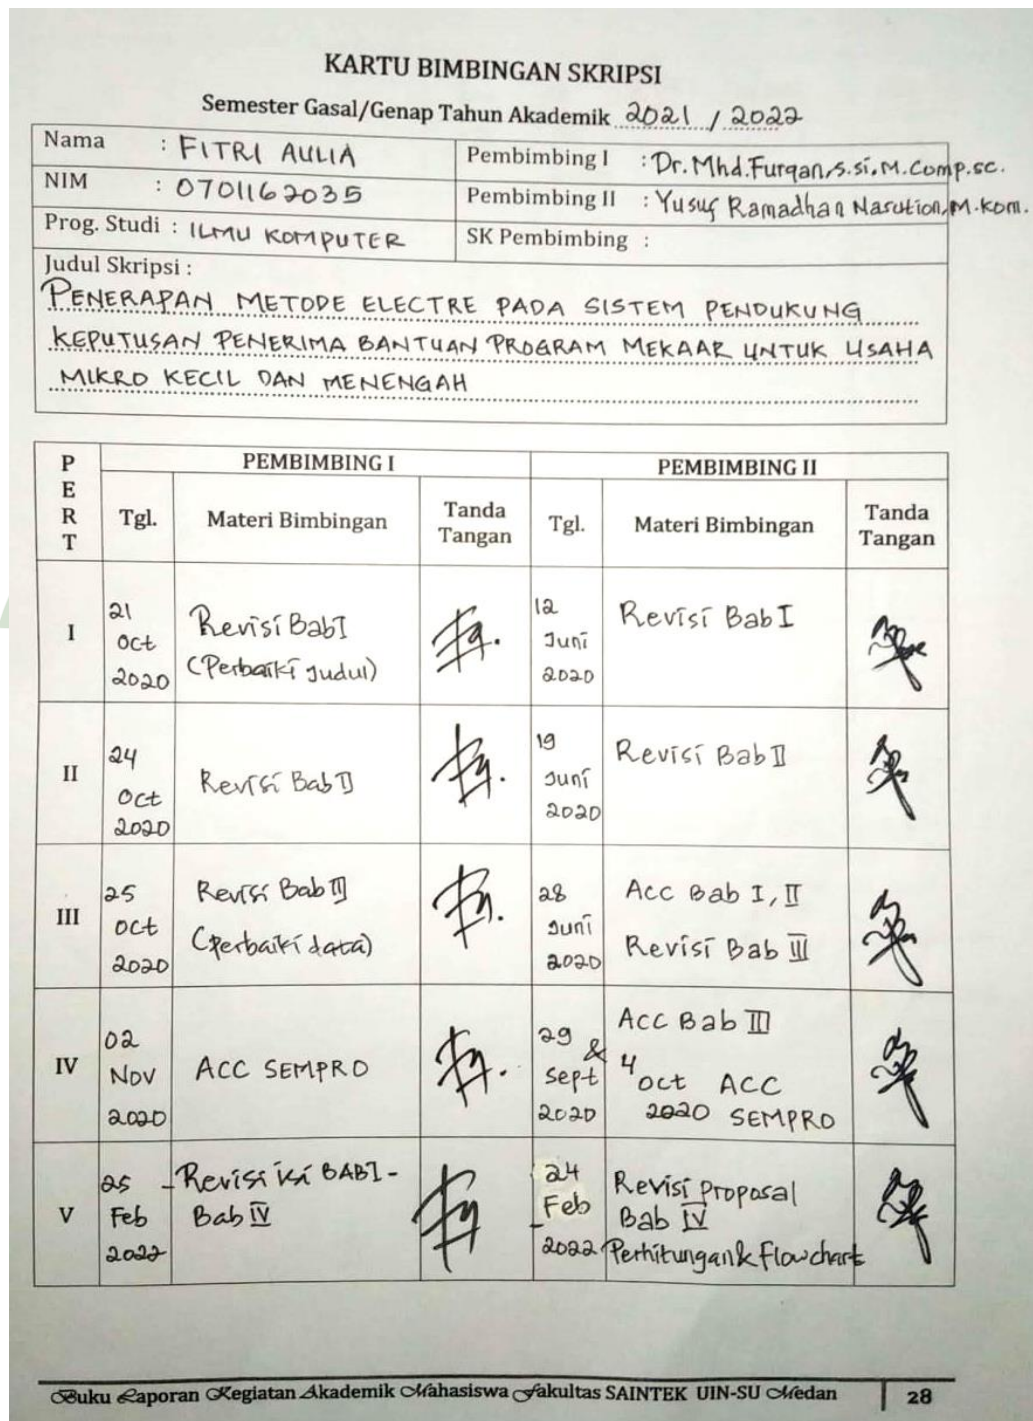 KARTU BIMBINGAN SKRIPSI
Semester Gasal/Genap Tahun Akademik 2021 / 2022
Nama : FITRI AULIA
Pembimbing I : Dr. Mhd. Furqan, S.si, M.Comp.sc.
NIM : 0701162035
Pembimbing II : Yusuf Ramadhan Nasution, M.kom.
Prog. Studi : ILMU KOMPUTER
SK Pembimbing :
Judul Skripsi :
PENERAPAN METODE ELECTRE PADA SISTEM PENDUKUNG
KEPUTUSAN PENERIMA BANTUAN PROGRAM MEKAAR UNTUK USAHA
MIKRO KECIL DAN MENENGAH
PERT
PEMBIMBING I
PEMBIMBING II
Tgl.
Materi Bimbingan
Tanda
Tangan
Tgl.
Materi Bimbingan
Tanda
Tangan
I
21
Oct
2020
Revisi Bab I
(Perbaiki Judul)
12
Juni
2020
Revisi Bab I
II
24
Oct
2020
Revisi Bab II
19
Juni
2020
Revisi Bab II
III
25
Oct
2020
Revisi Bab III
(Perbaiki data)
28
Juni
2020
Acc Bab I, II
Revisi Bab III
IV
02
Nov
2020
ACC SEMPRO
29 &
Sept
2020
Acc Bab III
4 Oct ACC
2020 SEMPRO
V
25
Feb
2022
Revisi isi BAB I -
Bab IV
24
Feb
2022
Revisi Proposal
Bab IV
Perhitungan & Flowchart
Buku Laporan Kegiatan Akademik Mahasiswa Fakultas SAINTEK UIN-SU Medan 28